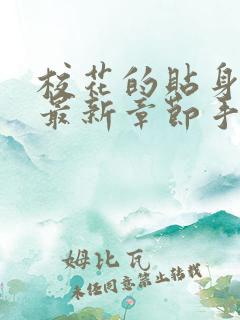 校花的贴身
最新章节手
姆比瓦
未经同意禁止转载